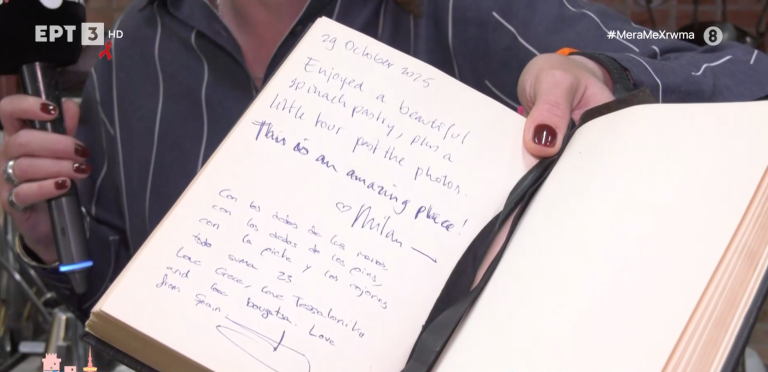 ΕΡΤ 3 HD
#MeraMeXrwma 8
29 October 2025
Enjoyed a beautiful
spinach pastry, plus a
little tour past the photos.
This is an amazing place!
♡ Milan
Con los dedos de las manos
con los dedos de los pies,
con la picha y los cojones
todo suma 23
Love Greece, love Tessaloniki
and love bougatsa. Love
from Spain